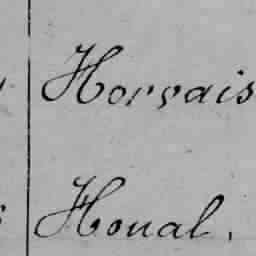 Horvais
Houal.